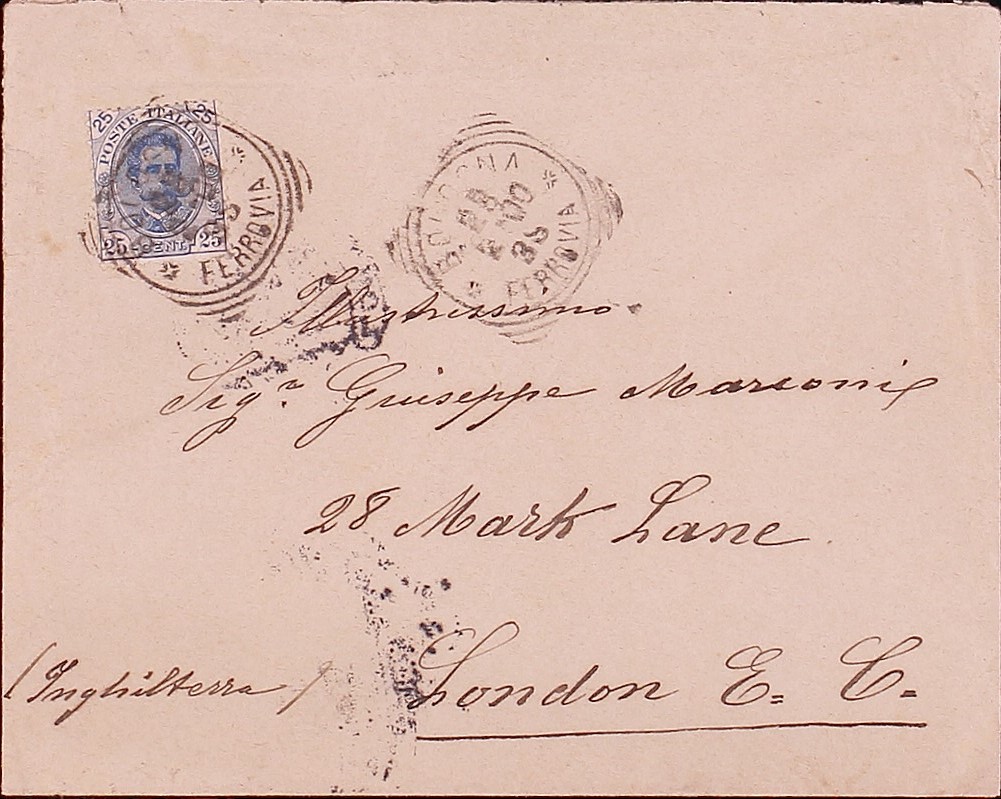 25 25
POSTE ITALIANE
25 CENT. 25
FERROVIA
BOLOGNA
FERROVIA
Illustrissimo
Sigr. Giuseppe Marconi
28 Mark Lane
London E. C.
(Inghilterra)